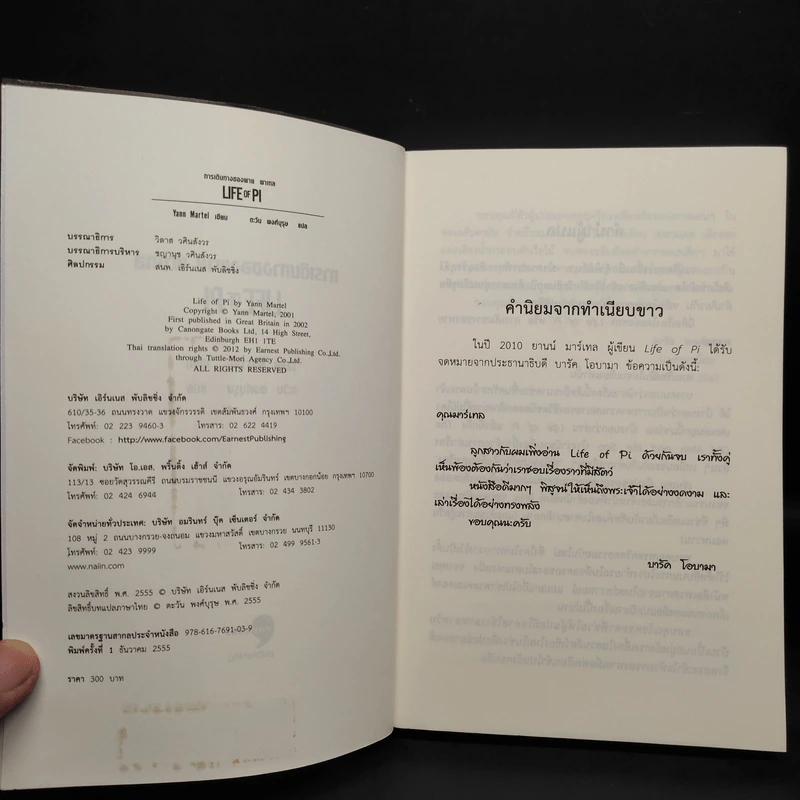 การเดินทางของพาย พาเทล
LIFE OF PI
Yann Martel เขียน ตะวัน พงศ์บุรุษ แปล
บรรณาธิการ วิลาส วศินสังวร
บรรณาธิการบริหาร ชญานุช วศินสังวร
ศิลปกรรม สนพ. เอิร์นเนส พับลิชชิ่ง
Life of Pi by Yann Martel
Copyright © Yann Martel, 2001
First published in Great Britain in 2002
by Canongate Books Ltd, 14 High Street,
Edinburgh EH1 1TE
Thai translation rights © 2012 by Earnest Publishing Co.,Ltd.
through Tuttle-Mori Agency Co.,Ltd.
ALL RIGHTS RESERVED
บริษัท เอิร์นเนส พับลิชชิ่ง จำกัด
610/35-36 ถนนทรงวาด แขวงจักรวรรดิ เขตสัมพันธวงศ์ กรุงเทพฯ 10100
โทรศัพท์: 02 223 9460-3 โทรสาร: 02 622 4419
Facebook : http://www.facebook.com/EarnestPublishing
จัดพิมพ์: บริษัท โอ.เอส. พริ้นติ้ง เฮ้าส์ จำกัด
113/13 ซอยวัดสุวรรณคีรี ถนนบรมราชชนนี แขวงอรุณอัมรินทร์ เขตบางกอกน้อย กรุงเทพฯ 10700
โทรศัพท์: 02 424 6944 โทรสาร: 02 434 3802
จัดจำหน่ายทั่วประเทศ: บริษัท อมรินทร์ บุ๊ค เซ็นเตอร์ จำกัด
108 หมู่ 2 ถนนบางกรวย-จงถนอม แขวงมหาสวัสดิ์ เขตบางกรวย นนทบุรี 11130
โทรศัพท์: 02 423 9999 โทรสาร: 02 499 9561-3
www.naiin.com
สงวนลิขสิทธิ์ พ.ศ. 2555 © บริษัท เอิร์นเนส พับลิชชิ่ง จำกัด
ลิขสิทธิ์บทแปลภาษาไทย © ตะวัน พงศ์บุรุษ พ.ศ. 2555
เลขมาตรฐานสากลประจำหนังสือ 978-616-7691-03-9
พิมพ์ครั้งที่ 1 ธันวาคม 2555
ราคา 300 บาท
คำนิยมจากทำเนียบขาว
ในปี 2010 ยานน์ มาร์เทล ผู้เขียน Life of Pi ได้รับ
จดหมายจากประธานาธิบดี บารัค โอบามา ข้อความเป็นดังนี้:
คุณมาร์เทล
ลูกสาวกับผมเพิ่งอ่าน Life of Pi ด้วยกันจบ เราทั้งคู่
เห็นพ้องต้องกันว่าเราชอบเรื่องราวที่มีสัตว์
หนังสือดีมากๆ พิสูจน์ให้เห็นถึงพระเจ้าได้อย่างงดงาม และ
เล่าเรื่องได้อย่างทรงพลัง
ขอบคุณนะครับ
บารัค โอบามา